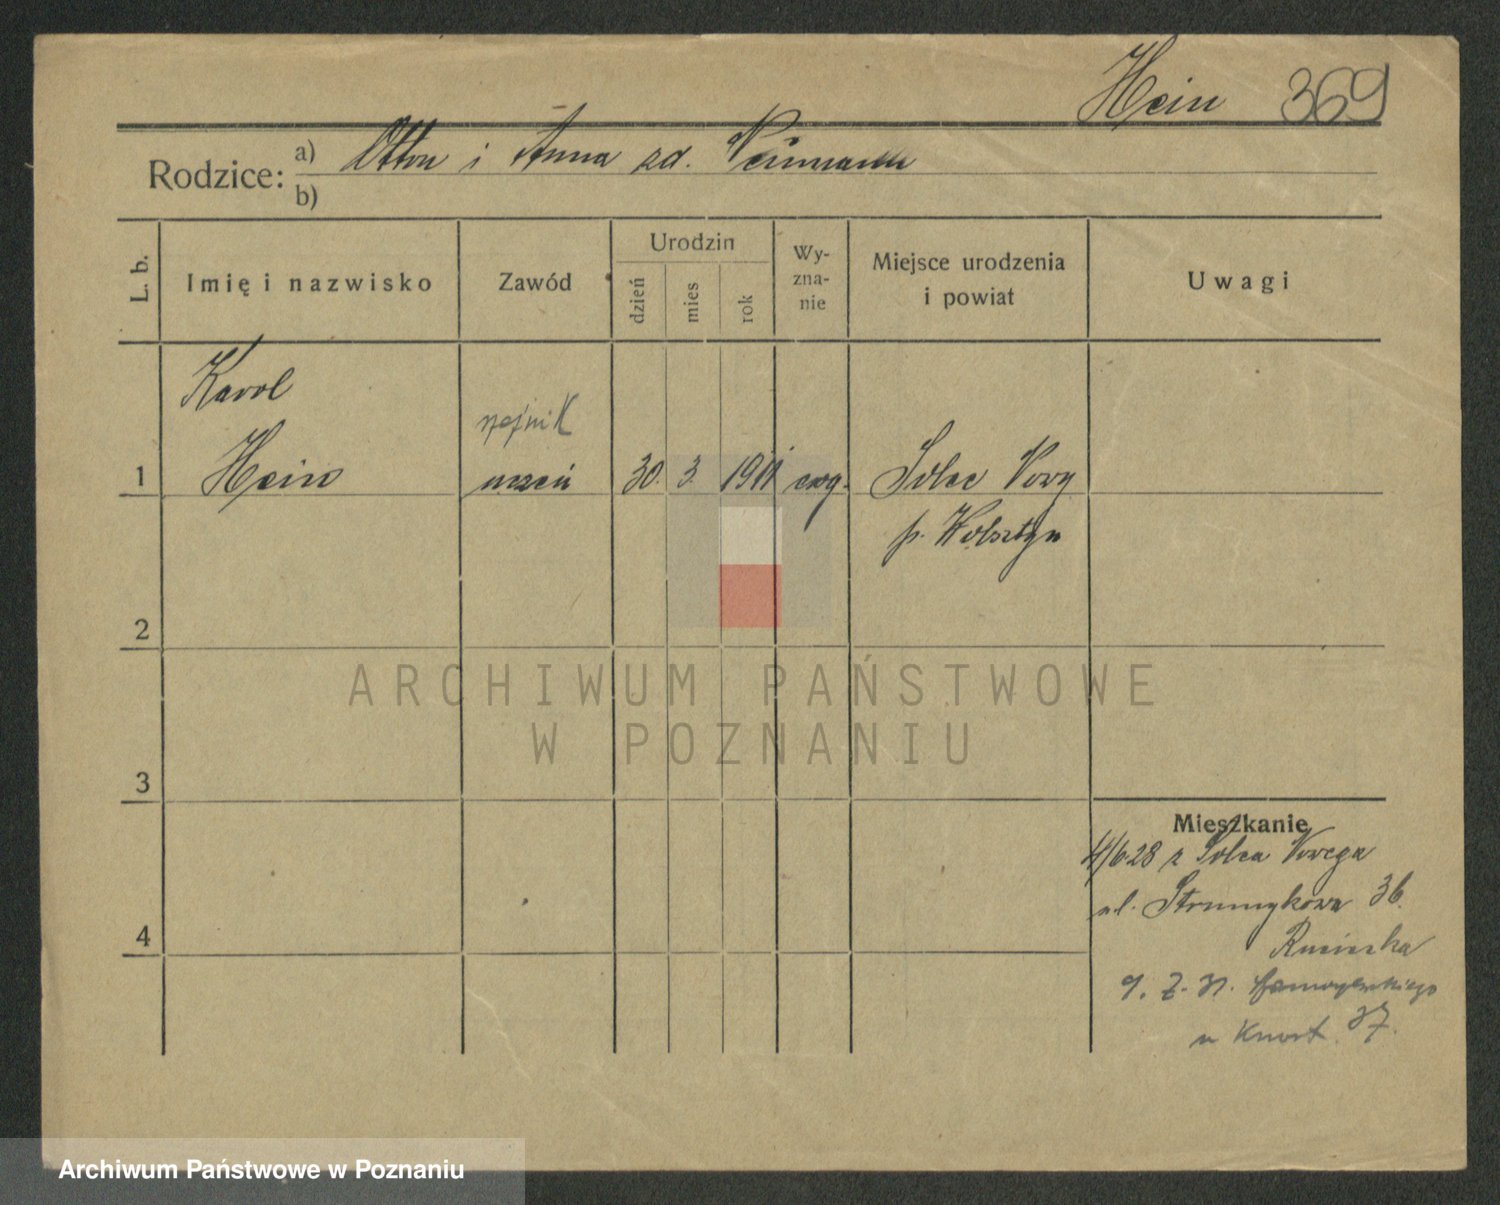 Hein 369
Rodzice: a) Otton i Anna zd. Neumann
b)
L. b.
Imię i nazwisko
Zawód
Urodzin
dzień
mies
rok
Wy-
zna-
nie
Miejsce urodzenia
i powiat
Uwagi
Karol
1 Hein uczeń 30. 3. 1911 ewg. Solec Nowy
p. Wolsztyn
2
3
4
Mieszkanie
4/6 28 z Solca Nowego
ul. Strumykowa 36.
37.
ARCHIWUM PAŃSTWOWE
W POZNANIU
Archiwum Państwowe w Poznaniu